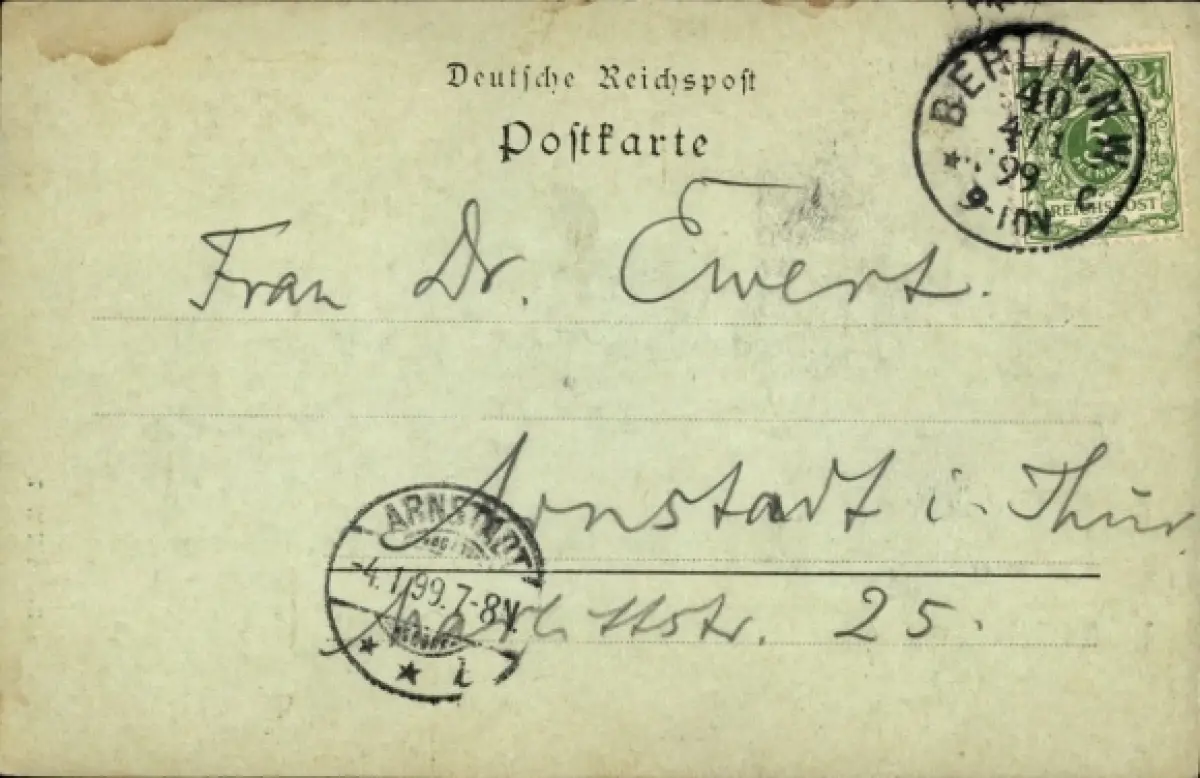 Deutsche Reichspost
Postkarte
BERLIN. N.W.
40
4/1
99
9-10V
C
5
PFENNIG
REICHSPOST
Frau Dr. Ewert.
Arnstadt i. Thür
Marlittstr. 25.
ARNSTADT
-4.1.99.7-8V.